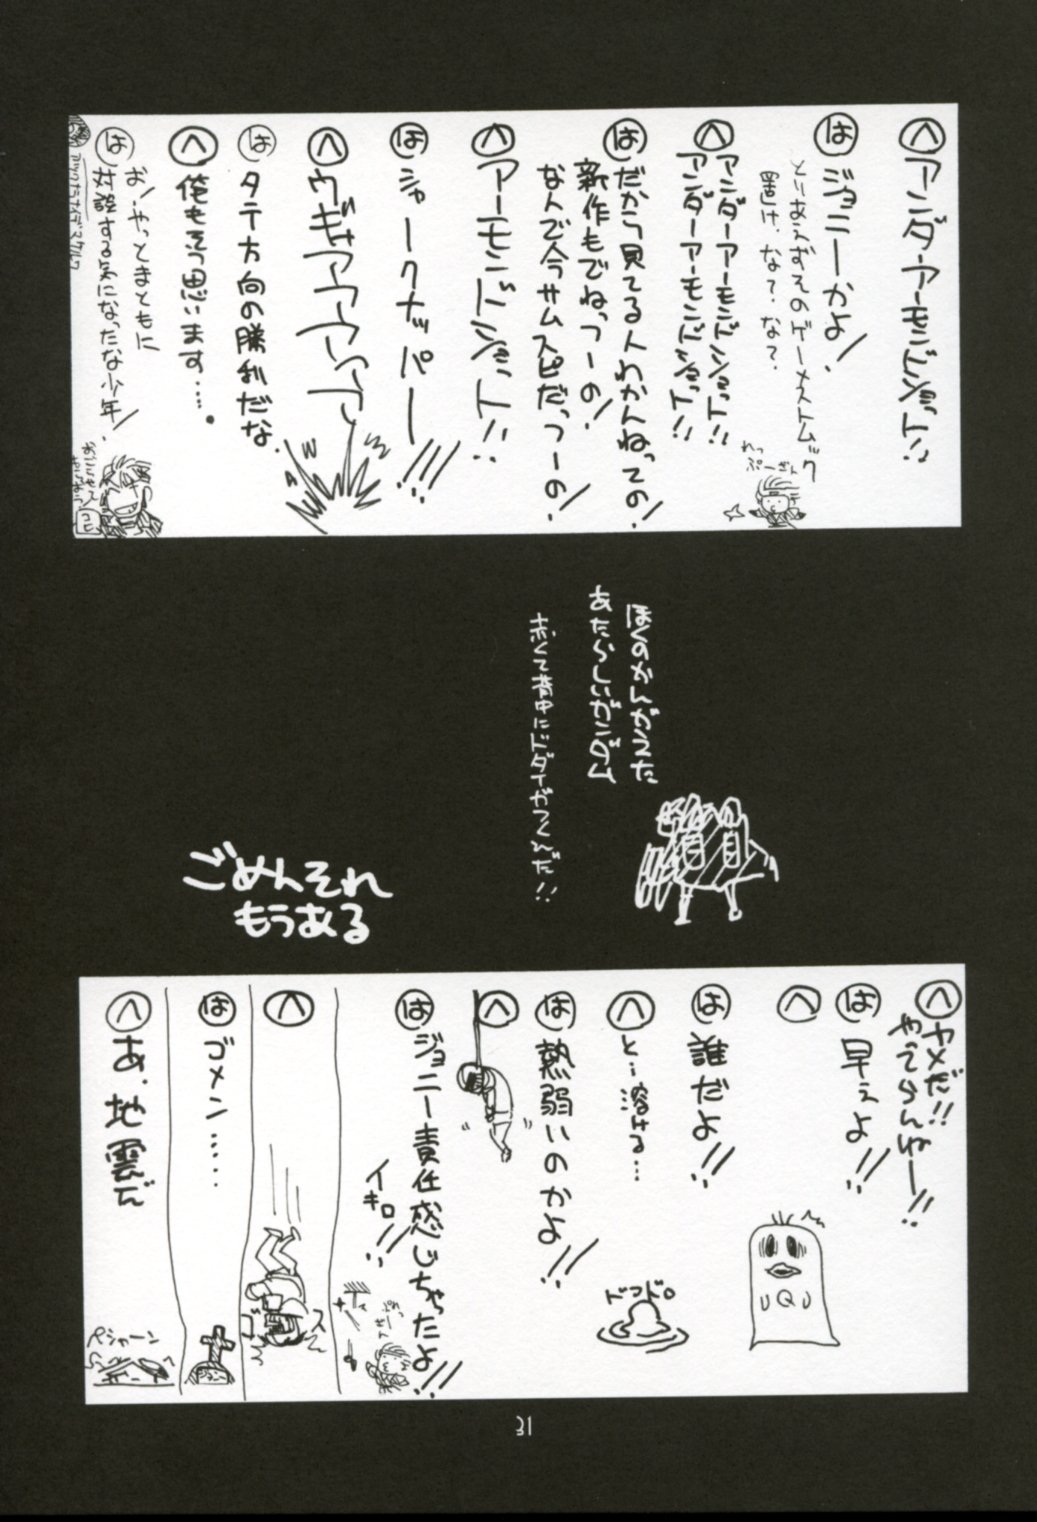 へ アンダーアーモンドショット!!
は ジョニーかよ!
とりあえずそのゲーメストムック
置け、な?・な?
れっ
ぷーざん
へ アンダーアーモンドショット!!
アンダーアーモンドショット!!
は だから見てる人わかんねっての!
新作もでねっつーの!
なんで今サムスピだっつーの!
へ アーモンドショット!!
は シャークナッパー!!!
へ ウギャアアアアアア
は タテ方向の勝利だな
へ 俺もそう思います……。
は お、やっとまともに
対談する気になったな少年!
ぼくのかんがえた
あたらしいガンダム
赤くて背中にドダイがつくんだ!!
ごめんそれ
もうある
へ ヤメだ!!
やってらんねー!!
は 早えよ!!
へ
Q
は 誰だよ!!
へ と…溶ける…
ドッドロ
は 熱弱いのかよ!!
へ
は ジョニー責任感じちゃったよ!!!
イキロ!!
へ
は ゴメン……
へ あ、地震だ
ペシャーン
31